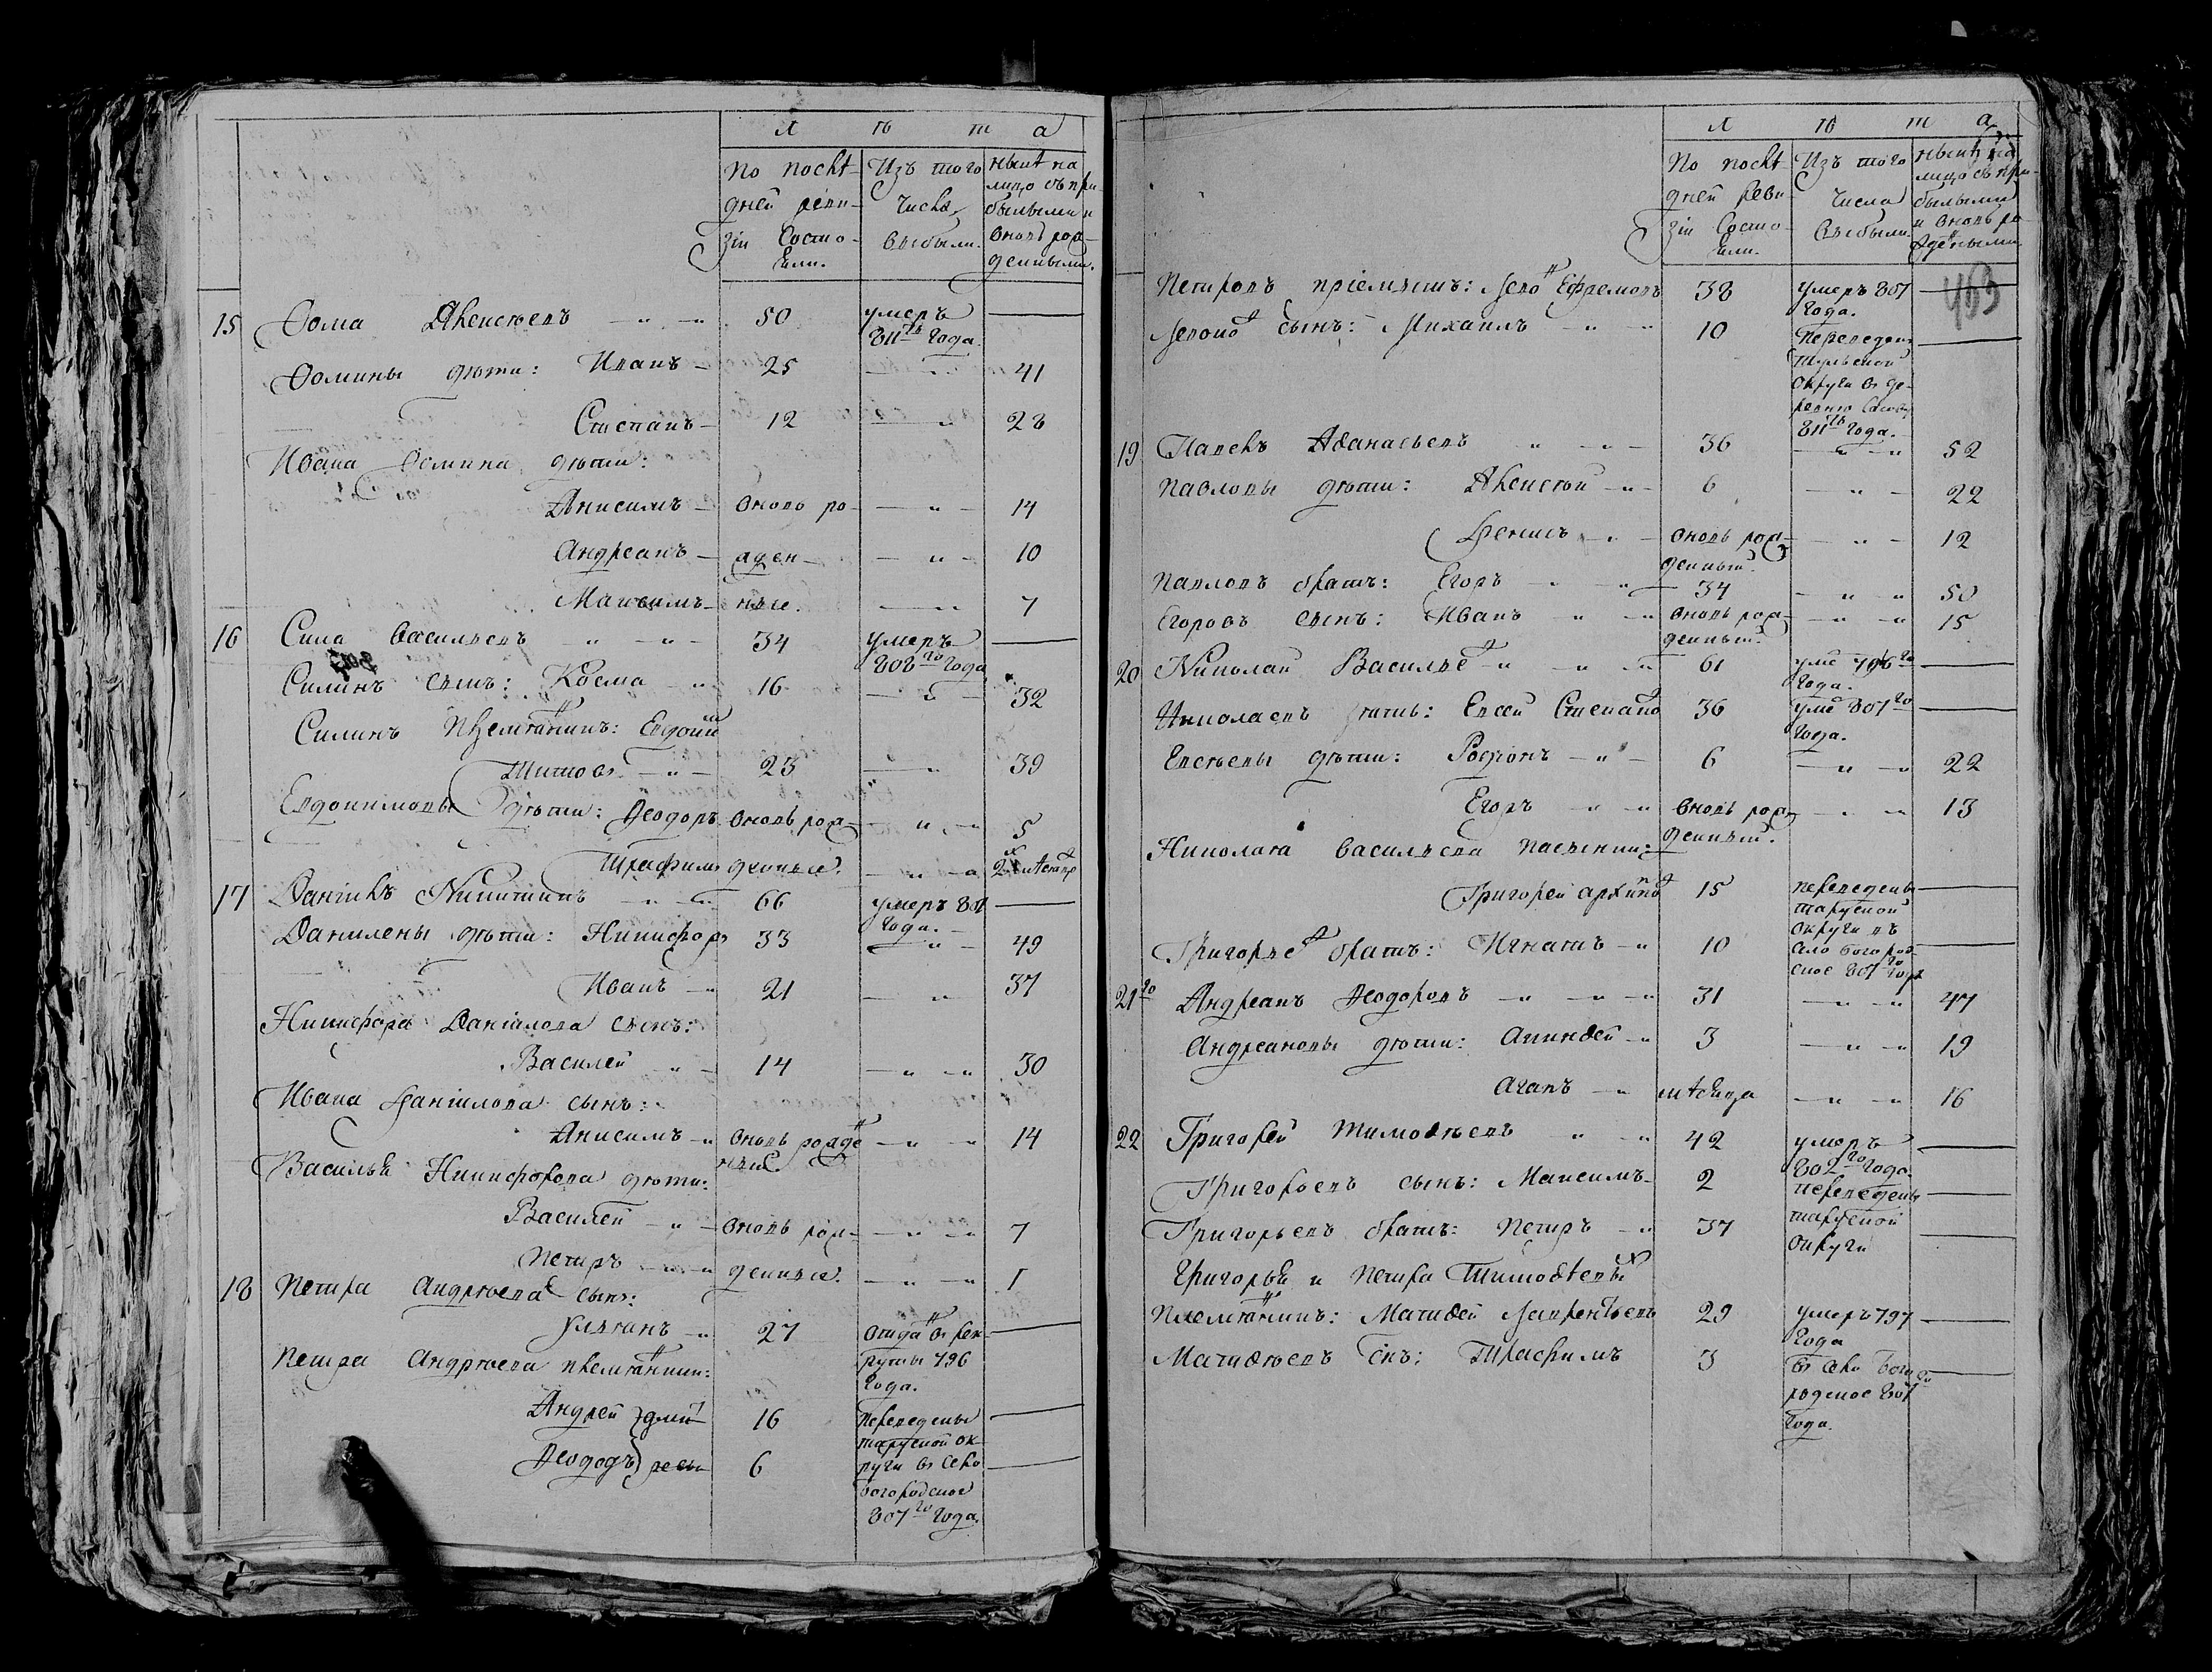 л ѣ т а
По послѣ-
дней реви-
зіи Состо-
яли.
Изъ того
числа
выбыли.
нынѣ на
лицо съ при-
былыми и
вновь рож-
денными.
15 Ѳома Алексѣевъ 50 умеръ —
811го года.
Ѳомины дѣти: Иванъ 25 41
Степанъ 12 28
Ивана Ѳомина дѣти:
Анисимъ вновь ро- 14
Андреанъ жден- 10
Максимъ ные. 7
16 Сила Васильевъ 34 умеръ —
808го года
Силинъ сынъ: Косма 16 32
Силинъ племянникъ: Евдоким
Титовъ 23 39
Евдокимовы дѣти: Ѳеодоръ вновь рож- 5
Трафимъ денные. 2
17 Данілъ Никитинъ 66 умеръ 801 —
года.
Данилены дѣти: Никифоръ 33 49
Иванъ 21 37
Никифора Данілова сынъ:
Василей 14 30
Ивана Данілова сынъ:
Анисимъ вновь рожде 14
ные.
Василья Никифорова дѣти:
Василей вновь рож- 7
Петръ денные. 1
18 Петра Андрѣева сынъ:
Улианъ 27 отда въ рек-
руты 796
года.
Петра Андрѣева племянники:
Андрей 16 переведены —
таруской ок-
Ѳеодоръ 6 руги въ село —
богородское
807го года.
л ѣ т а
По послѣ-
дней реви-
зіи Состо-
яли.
Изъ того
числа
выбыли.
нынѣ на
лицо съ при-
былыми
и вновь ро-
жденными.
463
Петровъ пріемышъ: Лево Ефремовъ 38 умеръ 807 —
года.
Левоно сынъ: Михаилъ 10 переведенъ —
Тульской
округи въ де-
ревню
811го года.
19 Павелъ Аѳанасьевъ 36 52
Павловы дѣти: Алексѣй 6 22
Денисъ вновь рож- 12
денный.
Павловъ братъ: Егоръ 34 50
Егоровъ сынъ: Иванъ вновь рож- 15
денный.
20 Николай Василье 61 уме 796го —
года.
Николаевъ зять: Евсей Степано 36 уме 807го —
года.
Евсѣевы дѣти: Родіонъ 6 22
Егоръ вновь рож- 13
денный.
Николая Васильева пасынки:
Григорей архипо 15 переведены —
таруской
округи въ
Григорье братъ: Игнатъ 10 село богород- —
ское 807го года
21го Андреанъ Ѳеодоровъ 31 47
Андреановы дѣти: Акинѳей 3 19
Агапъ мѣсяца 16
22 Григорей Тимоѳѣевъ 42 умеръ —
802го года.
Григорьевъ сынъ: Максимъ 2 переведены —
Григорьевъ братъ: Петръ 37 таруской —
округи
Григорья и Петра Тимоѳѣевы
Племянникъ: Матвѳей Лаврентьевъ 29 умеръ 797 —
года
Матвѳѣевъ снъ: Трафимъ 3 въ село бого —
родское 807го
года.